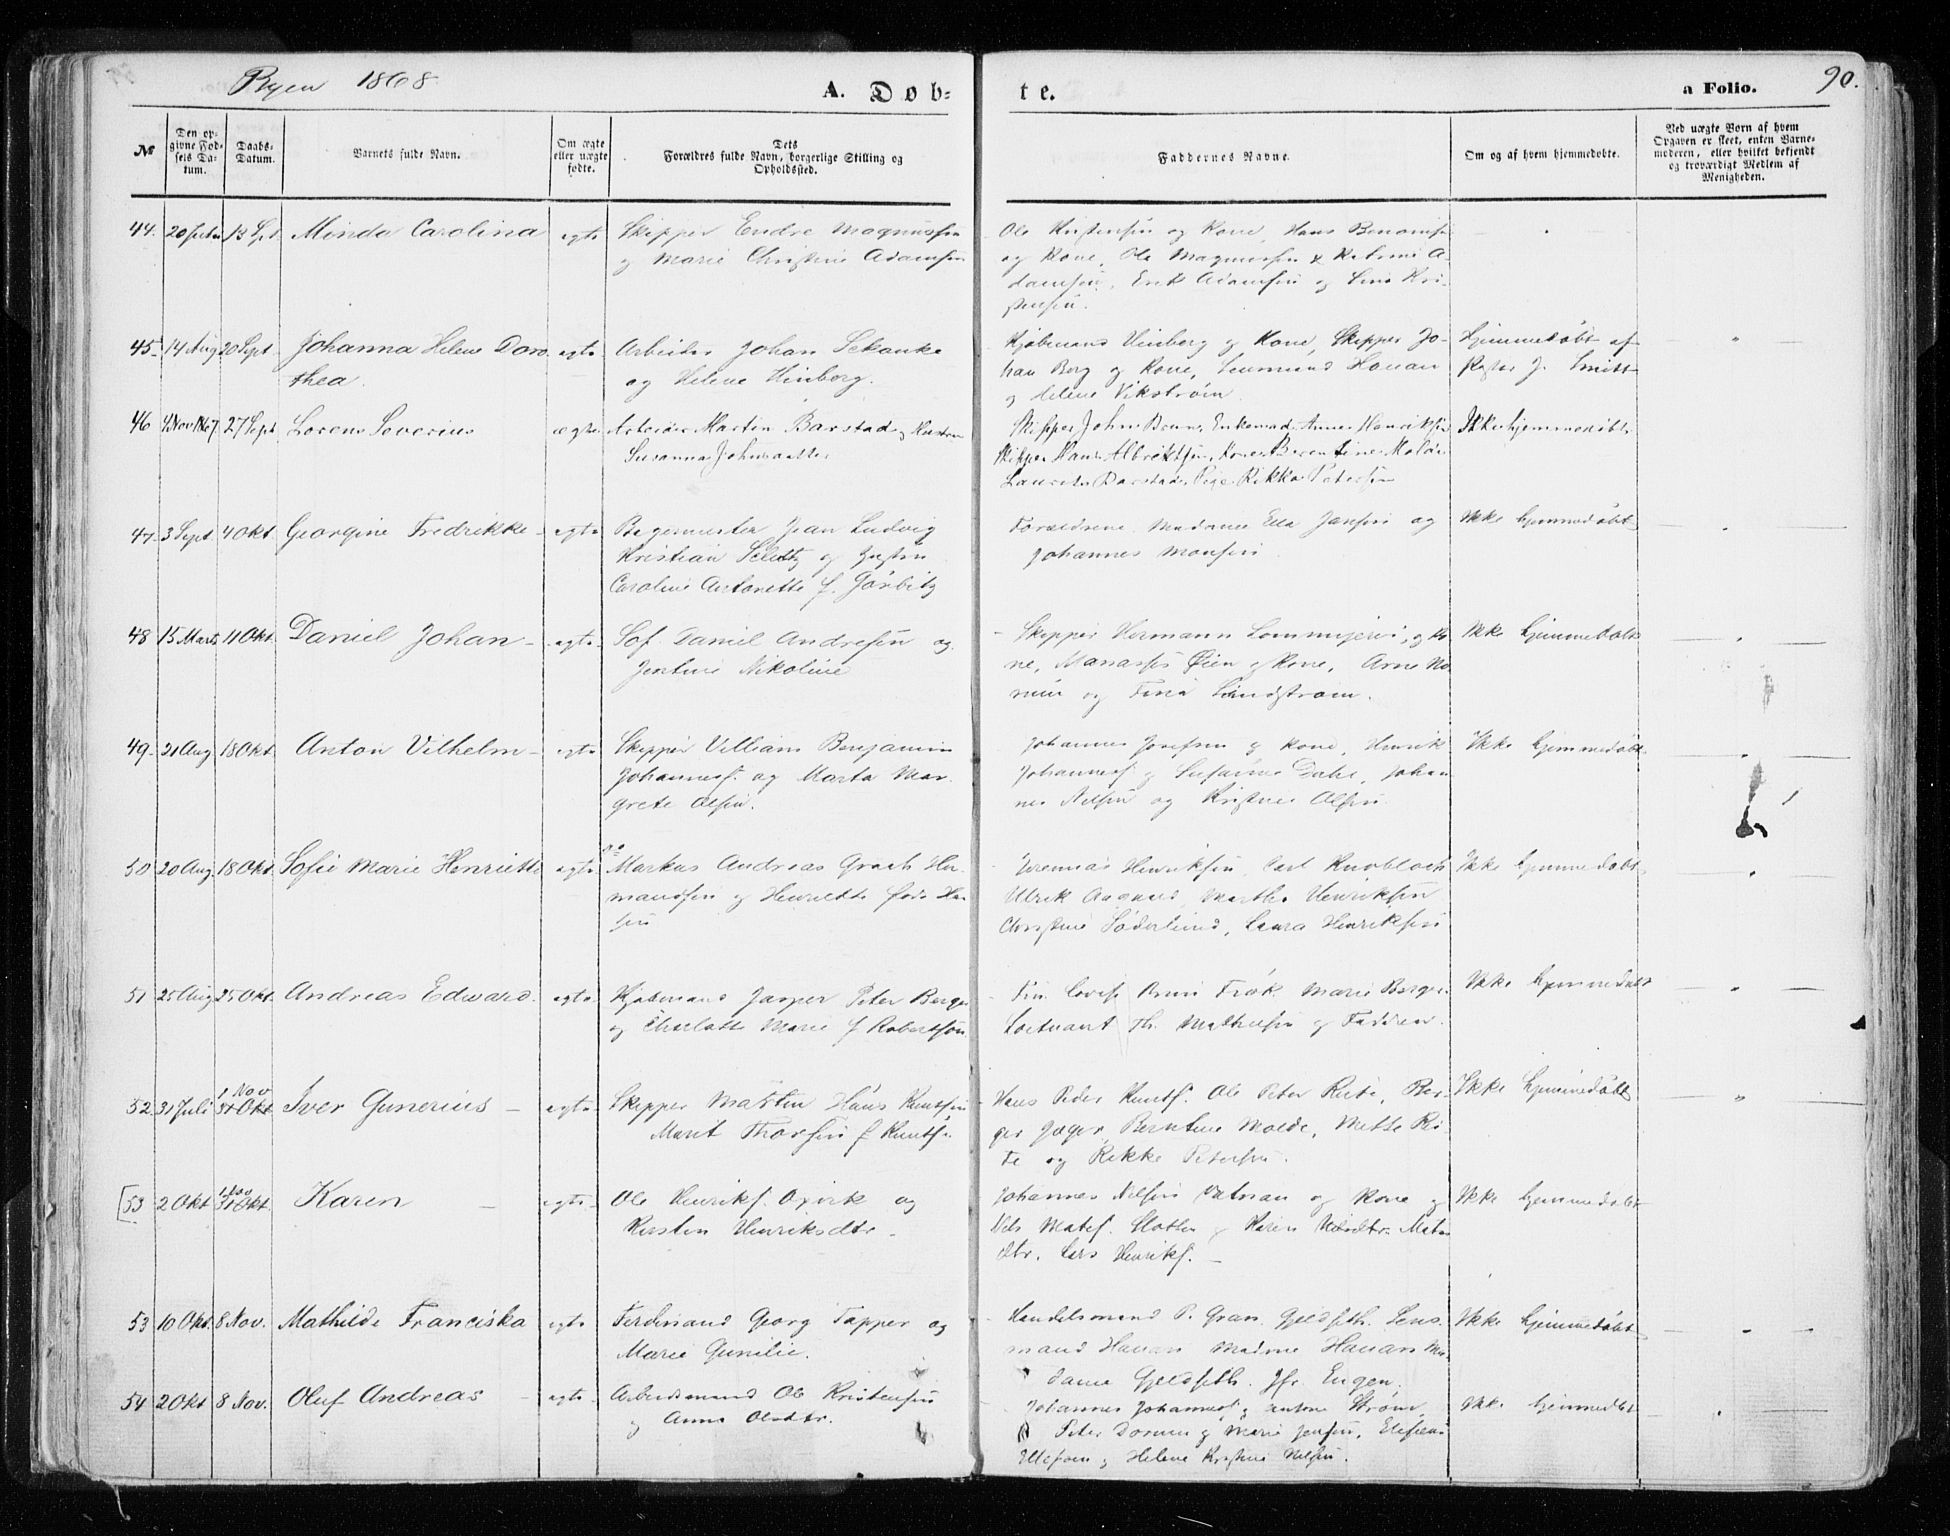 Byen 1868.
A. Døb-
te.
a Folio.
90.
№
Den op-
givne Fød-
sels Da-
tum.
Daabs-
Datum.
Barnets fulde Navn.
Om ægte
eller uægte
fødte.
Dets
Forældres fulde Navn, borgerlige Stilling og
Opholdssted.
Faddernes Navne.
Om og af hvem hjemmedøbte.
Ved uægte Born af hvem
Opgaven er skeet, enten Barne-
moderen, eller hvilket bekjendt
og troværdigt Medlem af
Menigheden.
44. 13 Spt Minda Carolina egte Skipper Endre Magnussen
og Marie Christine Adamsen
Ole Kristensen og Kone, Hans
og Kone, Ole Magnussen A-
damsen, Erik Adamsen og Kri-
stensen.
45 14 Aug 20 Sept Johanna Helene Doro- egte Arbeider Johan Schanke
thea. og Helene Hinborg.
Kjøbmand Hinborg og Kone, Skipper Jo-
han Berg og Kone, Lensmand Hanan
og Helene Vikstrøm
hjemmedøbt af
J. Smitt
46 4 Nov 1867 27 Sept Lorens Severius ægte Arbeider Martin Barstad og Hustru
Susanna Johnsdatter
Skipper John Bruun, Enkemad. Anne Henriksen
Skipper Hans Albriktsen, Kone Berentine
Laurits Barstad, Pige Rikka Petersen
Ikke hjemmedøbt
47 3 Sept 4 Okt Georgine Fredrikke egte Bagermester Jean Ludvig
Kristian og Hustru
Caroline Antonette f. Gørbitz
Forældrene. Madame Jansen og
Johannes Monsen
Ikke hjemmedøbt
48 15 Marts 11 Okt. Daniel Johan egte Sof. Daniel Andresen og
Jentine Nikoline
Skipper Hermann og Ko-
ne, Manasses Øien og Kone, Arne
og Lindstrøm.
Ikke hjemmedøbt
49 21 Aug 18 Okt. Anton Vilhelm egte Skipper Villiam Benjamin
Johannes. og Marta Mar-
grete Olsen.
Johannes Josefsen og Kone, Henrik
Johannes. og Susanna Dahl, Johan-
nes Nilsen og Kristine Olsen.
Ikke hjemmedøbt
50 20 Aug 18 Okt. Sofie Marie Henriette egte Markus Andreas Her-
mansen og Henriette født Han-
sen
Jeremias Henriksen, Carl Knobloch
Ulrik Aagaard, Martha Henriksen
Christine Søderlund, Laura Henriksen
Ikke hjemmedøbt
51 25 Aug 25 Okt. Andreas Edward. egte Kjøbmand Jasper Peter Berger
og Charlotte Marie f Robertson
Frøk. Marie Berger
Løitnant Th. Mathiesen og Fadren.
Ikke hjemmedøbt
52 31 Juli 1 Nov 31 Okt Iver Gunerius egte Skipper Martin Hans Knutsen
Marit Thorsen f Knuts.
Hans Peder Knuts. Ole Peter Rute, Ber-
ger Jæger, Berntine Molde, Mette Ru-
te og Rikke Petersen.
Ikke hjemmedøbt
[53 2 Okt 1 Nov 31 Okt. Karen egte Ole Henriks. Oxvik og
Kirsten Henriksdtr.
Johannes Nilsen og Kone og
Nils Mats. og Karen Nilsdtr. Mats-
dtr. Lars Henriks.
Ikke hjemmedøbt
53 10 Okt. 8 Nov. Mathilde Franciska egte Ferdinand Georg Tapper og
Marie Gunilie.
Handelsmand P. Gran. Gjeldseth. Lens-
mand Hanan Madme Hanan Ma-
dame Gjeldseth. Jfr. Engen.
Ikke hjemmedøbt
54 2 Okt 8 Nov. Oluf Andreas egte Arbeidsmand Ole Kristensen
og Anne Olsdtr.
Johannes Johannes. og Antone Strøm
Peter og Marie Jensen,
Ellefsen og Helene Kristine Nilsen.
Ikke hjemmedøbt